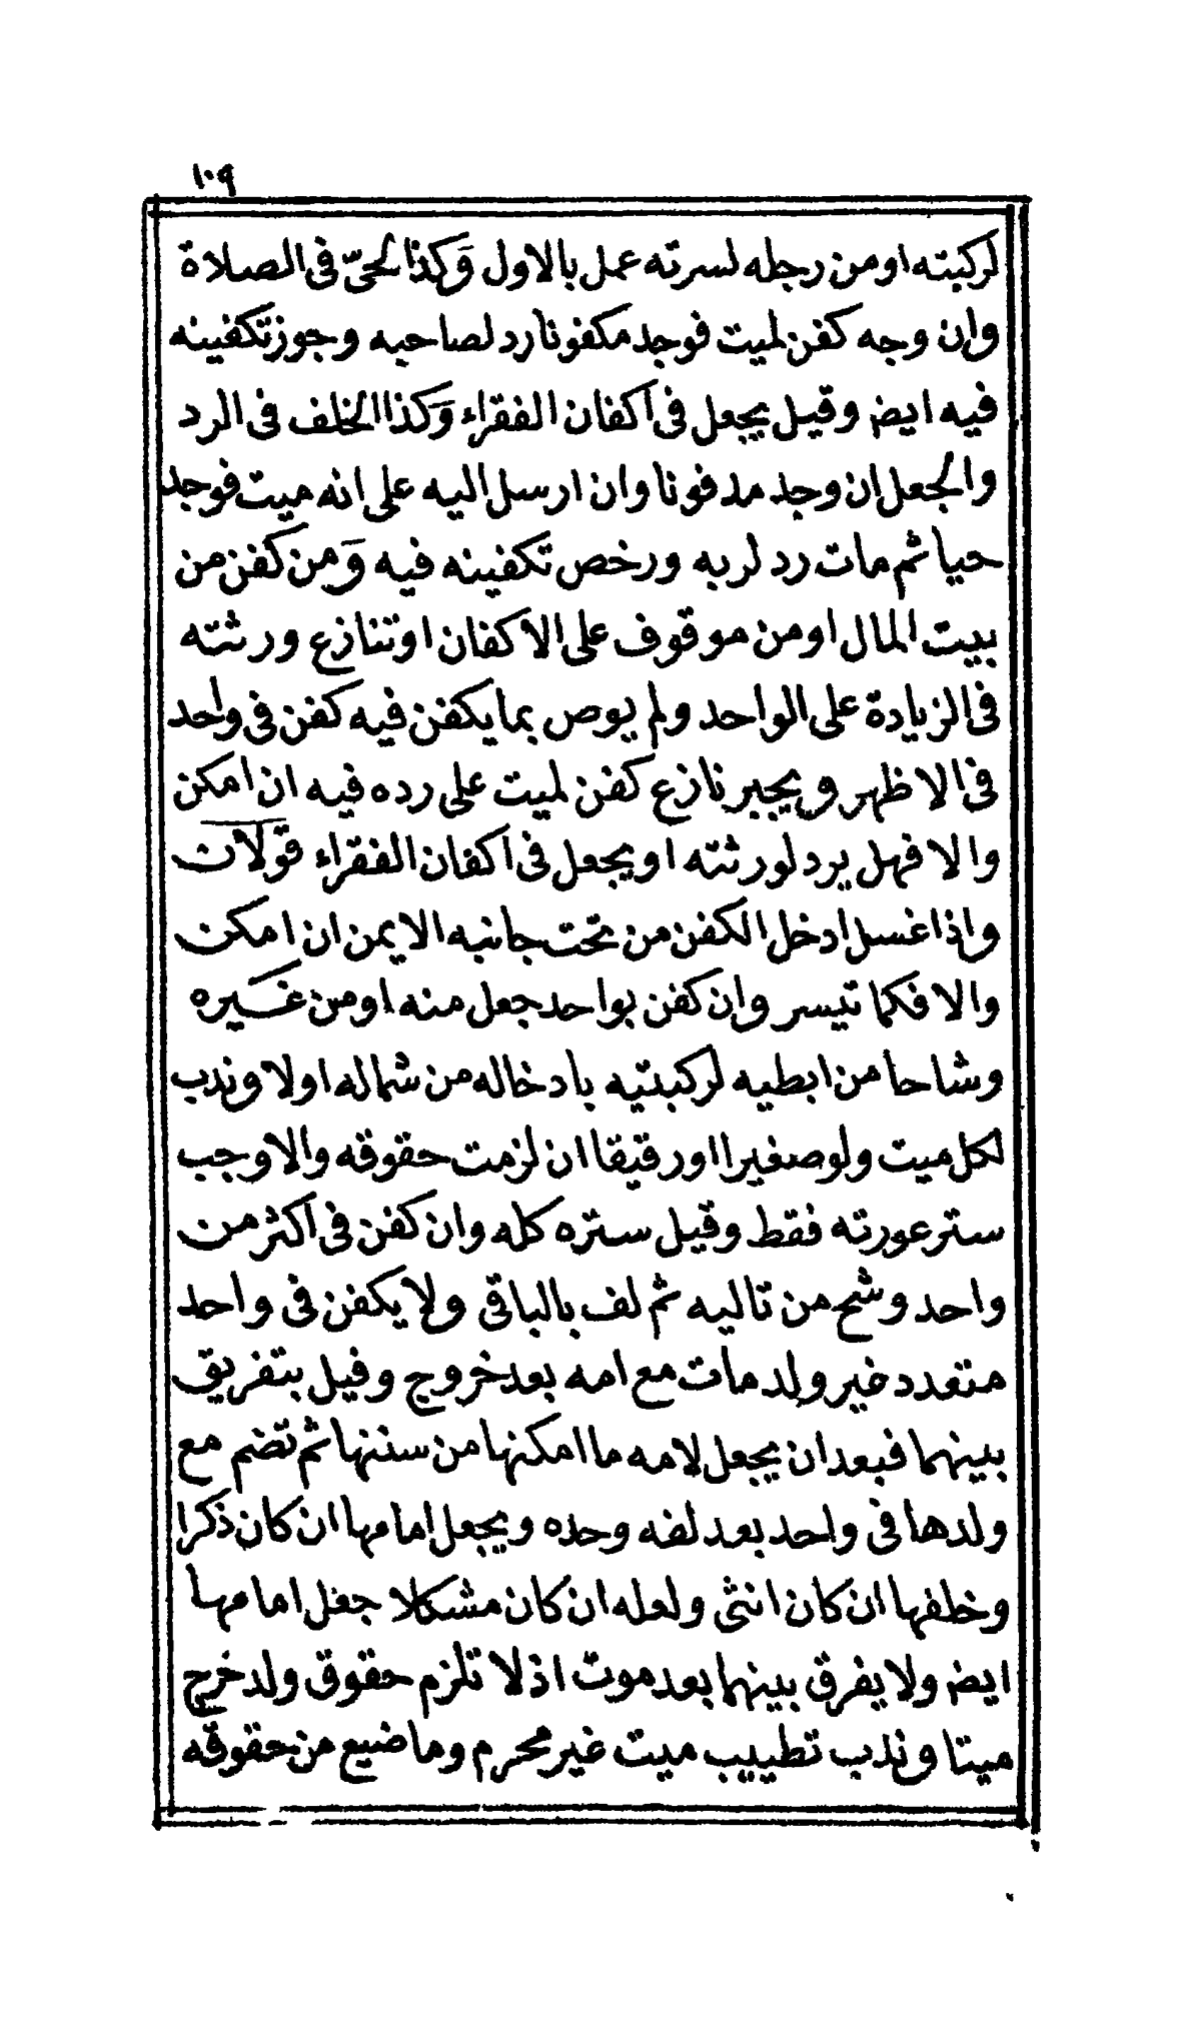 ١٠٩
لركبته او من رجله لسرته عمل بالاول وَكذا الحىّ فى الصلاة
وان وجه كفن لميت فوجد مكفونا رد لصاحبه وجوز تكفينه
فيه ايض وقيل يجعل فى اكفان الفقراء وَكذا الخلف فى الرد
والجعل ان وجد مدفونا وان ارسل اليه على انه ميت فوجد
حيا ثم مات رد لربه ورخص تكفينه فيه وَمن كفن من
بيت المال او من موقوف على الاكفان او تنازع ورثته
فى الزيادة على الواحد ولم يوص بما يكفن فيه كفن فى واحد
فى الاظهر ويجبر نازع كفن لميت على رده فيه ان امكن
والا فهل يرد لورثته او يجعل فى اكفان الفقراء قولان
واذا غسل ادخل الكفن من تحت جانبه الايمن ان امكن
والا فكما تيسر وان كفن بواحد جعل منه او من غيره
وشاحا من ابطيه لركبتيه بادخاله من شماله اولا وندب
لكل ميت ولو صغيرا او رقيقا ان لزمت حقوقه والا وجب
ستر عورته فقط وقيل ستره كله وان كفن فى اكثر من
واحد وشح من تاليه ثم لف بالباقى ولا يكفن فى واحد
متعدد غير ولد مات مع امه بعد خروج وقيل بتفريق
بينهما فبعد ان يجعل لامه ما امكنها من سننها ثم تضم مع
ولدها فى واحد بعد لفه وحده ويجعل امامها ان كان ذكرا
وخلفها ان كان انثى ولعله ان كان مشكلا جعل امامها
ايض ولا يفرق بينهما بعد موت اذ لا تلزم حقوق ولد خرج
ميتا وندب تطييب ميت غير محرم وما ضيع من حقوقه